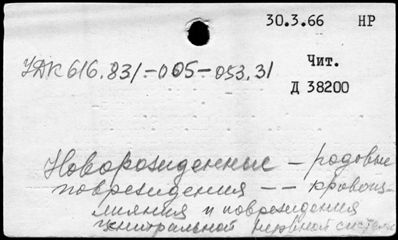 30.3.66 НР
УДК 616.831-005-053.31
Чит.
Д 38200
Новорожденные - родовые
повреждения -- кровоиз-
лияния и повреждения
центральной нервной системы